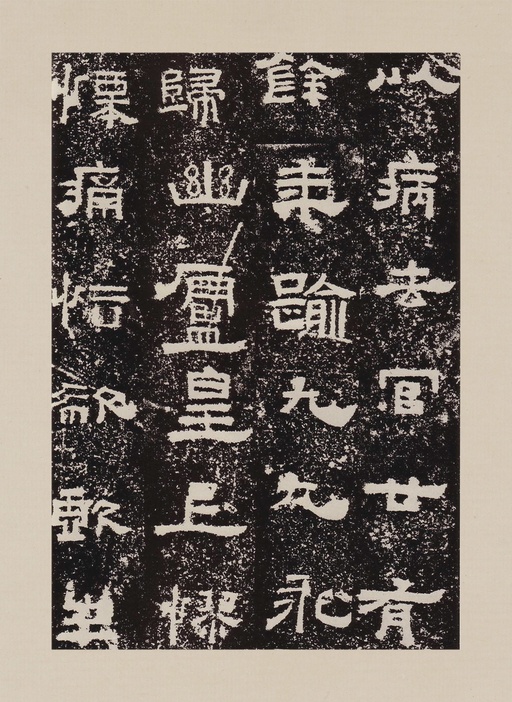 以病去官廿有
餘耒踰九九永
歸幽廬皇上憀
慄痛欷歔